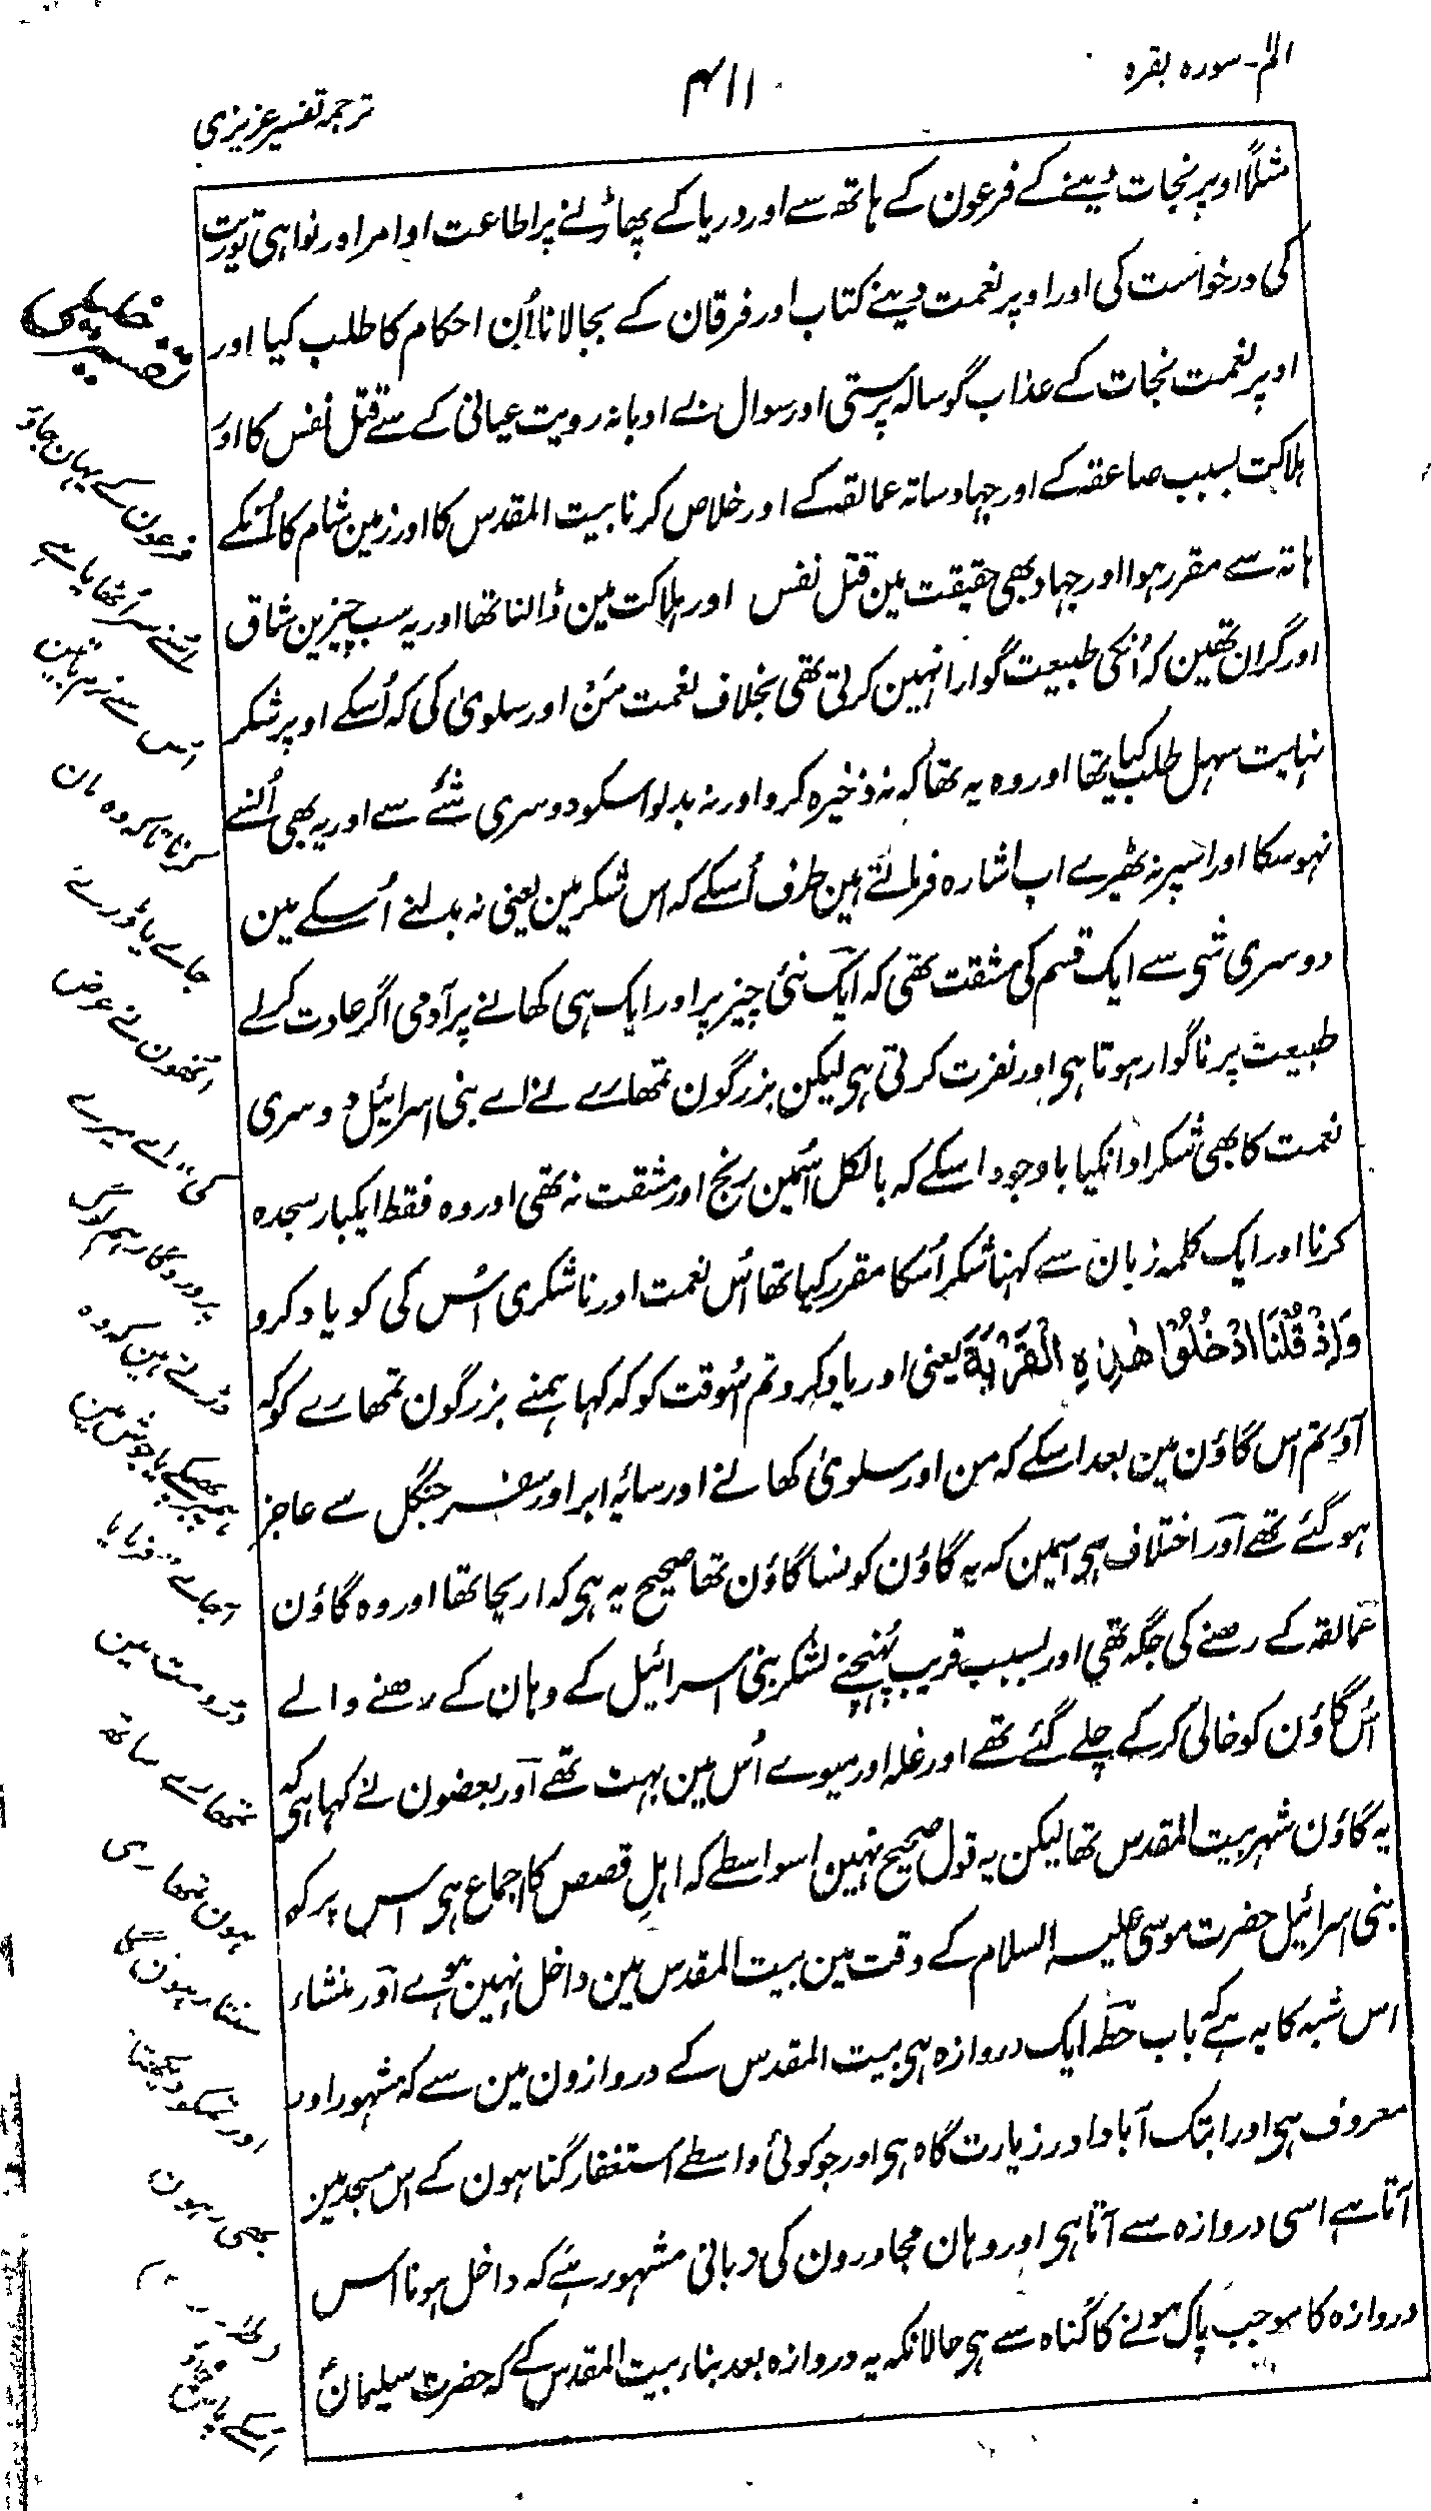 الم-سورہ بقرہ
۴۱۱
ترجمہ تفسیر عزیزی
مثلاً اوپر نجات دینے کے فرعون کے ہاتھ سے اور دریا کے پھاڑنے پر اطاعت اوامر اور نواہی توریت
کی درخواست کی اور اوپر نعمت دینے کتاب اور فرقان کے بجالانا اُن احکام کا طلب کیا اور
اوپر نعمت نجات کے عذاب گوسالہ پرستی اور سوال بے ادبانہ رویت عیانی کے سے قتل نفس کا اور
ہلاکت بسبب صاعقہ کے اور جہاد ساتہ عمالقہ کے اور خلاص کرنا بیت المقدس کا اور زمین شام کا اُنکے
ہاتہ سے مقرر ہوا اور جہاد بھی حقیقت مین قتل نفس اور ہلاکت مین ڈالنا تھا اور یہ سب چیزین شاق
اور گران تھین کہ اُنکی طبیعت گوارا نہین کرتی تھی بخلاف نعمت مَنْ اور سلویٰ کی کہ اُسکے اوپر شکر
نہایت سہل طلب کیا تھا اور وہ یہ تھا کہ نہ ذخیرہ کرو اور نہ بدلو اسکو دوسری شئے سے اور یہ بھی اُنسے
نہوسکا اور اسپر نہ ٹھیرے اب اشارہ فرماتے ہین طرف اُسکے کہ اس شکر مین یعنی نہ بدلنے اُسکے مین
دوسری شی سے ایک قسم کی مشقت تھی کہ ایک نئی چیز پر اور ایک ہی کھانے پر آدمی اگر عادت کرلے
طبیعت پر ناگوار ہوتا ہی اور نفرت کرتی ہی لیکن بزرگون تمھارے نے اے بنی اسرائیل دوسری
نعمت کا بھی شکر ادا نکیا باوجود اسکے کہ بالکل اُسمین رنج اور مشقت نہ تھی اور وہ فقط ایکبار سجدہ
کرنا اور ایک کلمہ زبان سے کہنا شکر اُسکا مقرر کیا تھا اُس نعمت اور ناشکری اُس کی کو یاد کرو
وَاِذْ قُلْنَا ادْخُلُوْا هٰذِهِ الْقَرْيَةَ یعنی اور یاد کرو تم اُسوقت کو کہ کہا ہمنے بزرگون تمھارے کو کہ
آؤ تم اس گاؤن مین بعد اسکے کہ من اور سلویٰ کھانے اور سایۂ ابر اور سفر جنگل سے عاجز
ہو گئے تھے اور اختلاف ہی اسمین کہ یہ گاؤن کونسا گاؤن تھا صحیح یہ ہی کہ اریحا تھا اور وہ گاؤن
عمالقہ کے رہنے کی جگہ تھی اور بسبب قریب پُہنچنے لشکر بنی اسرائیل کے وہان کے رہنے والے
اُس گاؤن کو خالی کر کے چلے گئے تھے اور غلہ اور میوے اُس مین بہت تھے اور بعضون نے کہا ہی کہ
یہ گاؤن شہر بیت المقدس تھا لیکن یہ قول صحیح نہین اسواسطے کہ اہلِ قصص کا اجماع ہی اس پر کہ
بنی اسرائیل حضرت موسیٰ علیہ السلام کے وقت مین بیت المقدس مین داخل نہین ہوے اور منشاء
اس شبہ کا یہ ہے کہ باب حطہ ایک دروازہ ہی بیت المقدس کے دروازون مین سے کہ مشہور اور
معروف ہی اور ابتک آباد اور زیارت گاہ ہی اور جو کوئی واسطے استغفار گناہون کے اس مسجد مین
آتا ہے اسی دروازہ سے آتا ہی اور وہان مجاورون کی زبانی مشہور ہے کہ داخل ہونا اس
دروازہ کا موجب پاک ہونے کا گناہ سے ہی حالانکہ یہ دروازہ بعد بناء بیت المقدس کے کہ حضرت سلیمانؑ
فرعون کے یہان جاؤ
اُسنے سر اُٹھایا ہے
اُس سے نرم باتین
کرنا تاکہ وہ مان
جاے یا ڈرے
اُنھون نے عرض
کی "اے میرے
پروردگار ہم لوگ
ڈرتے ہین کہ وہ
ہمپر بھبکے یا جوش مین
آجاے" فرمایا
ڈرو مت مین
تمھارے ساتھ
ہون تمھاری
سنتا رہون گا
اور تمکو دیکھتا
بھی رہون
اُسکے پاس جاؤ